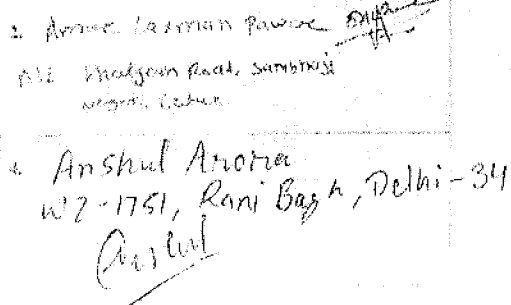 2 Amar Laxman Pawar
Khadgaon Road, Sambhaji
Nagar, Latur
Anshul Arora
WZ-1751, Rani Bagh, Delhi-34
Anshul